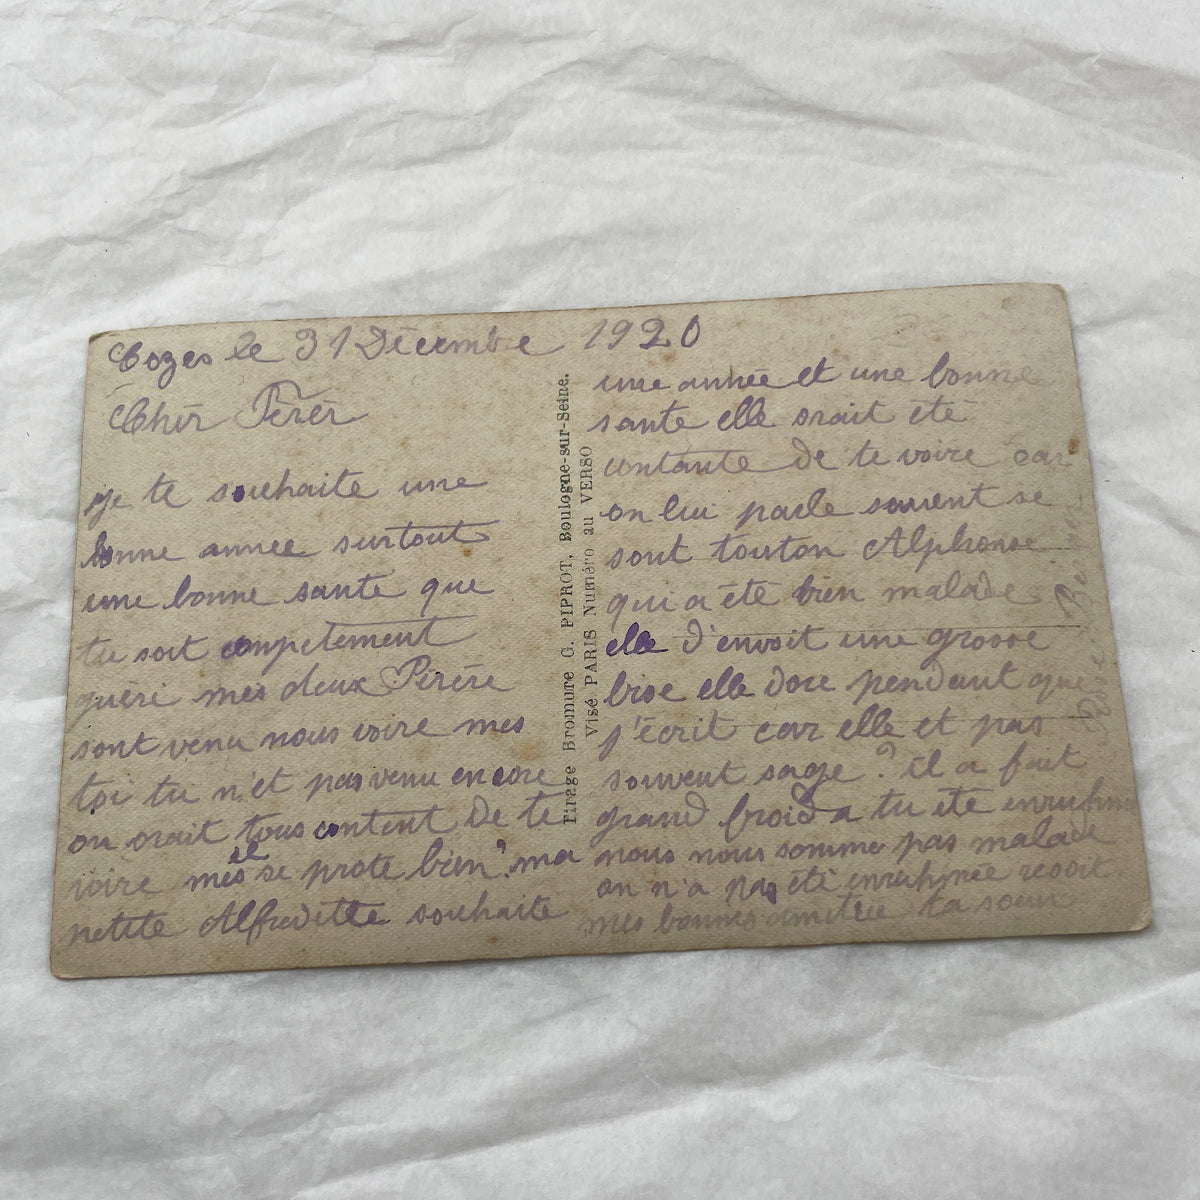 Cozes le 31 Décembre 1920
Chér Férér
je te souhaite une
bonne anneé surtout
une bonne sante que
tu soit compètement
guére mes deux Férére
sont venu nous voire mes
toi tu n'èt pas venu encore
on orait tous content de te
voire mes il se prote bien? ma
petite Alfredette souhaite
une année et une bonne
sante elle orait été
contante de te voire car
on lui parle souvent se
sont tonton Alphonse
qui a été bien malade
elle d'envoit une grosse
bise elle dore pendant que
j'écrit car elle et pas
souvent sage? il a fait
grand froid a tu été enruhmé
nous nous somme pas malade
on n'a pas été enruhmée resoit
mes bonnes amitiée ta soeur
Tirage Bromure G. PIPROT, Boulogne-sur-Seine.
Visé PARIS Numéro au VERSO